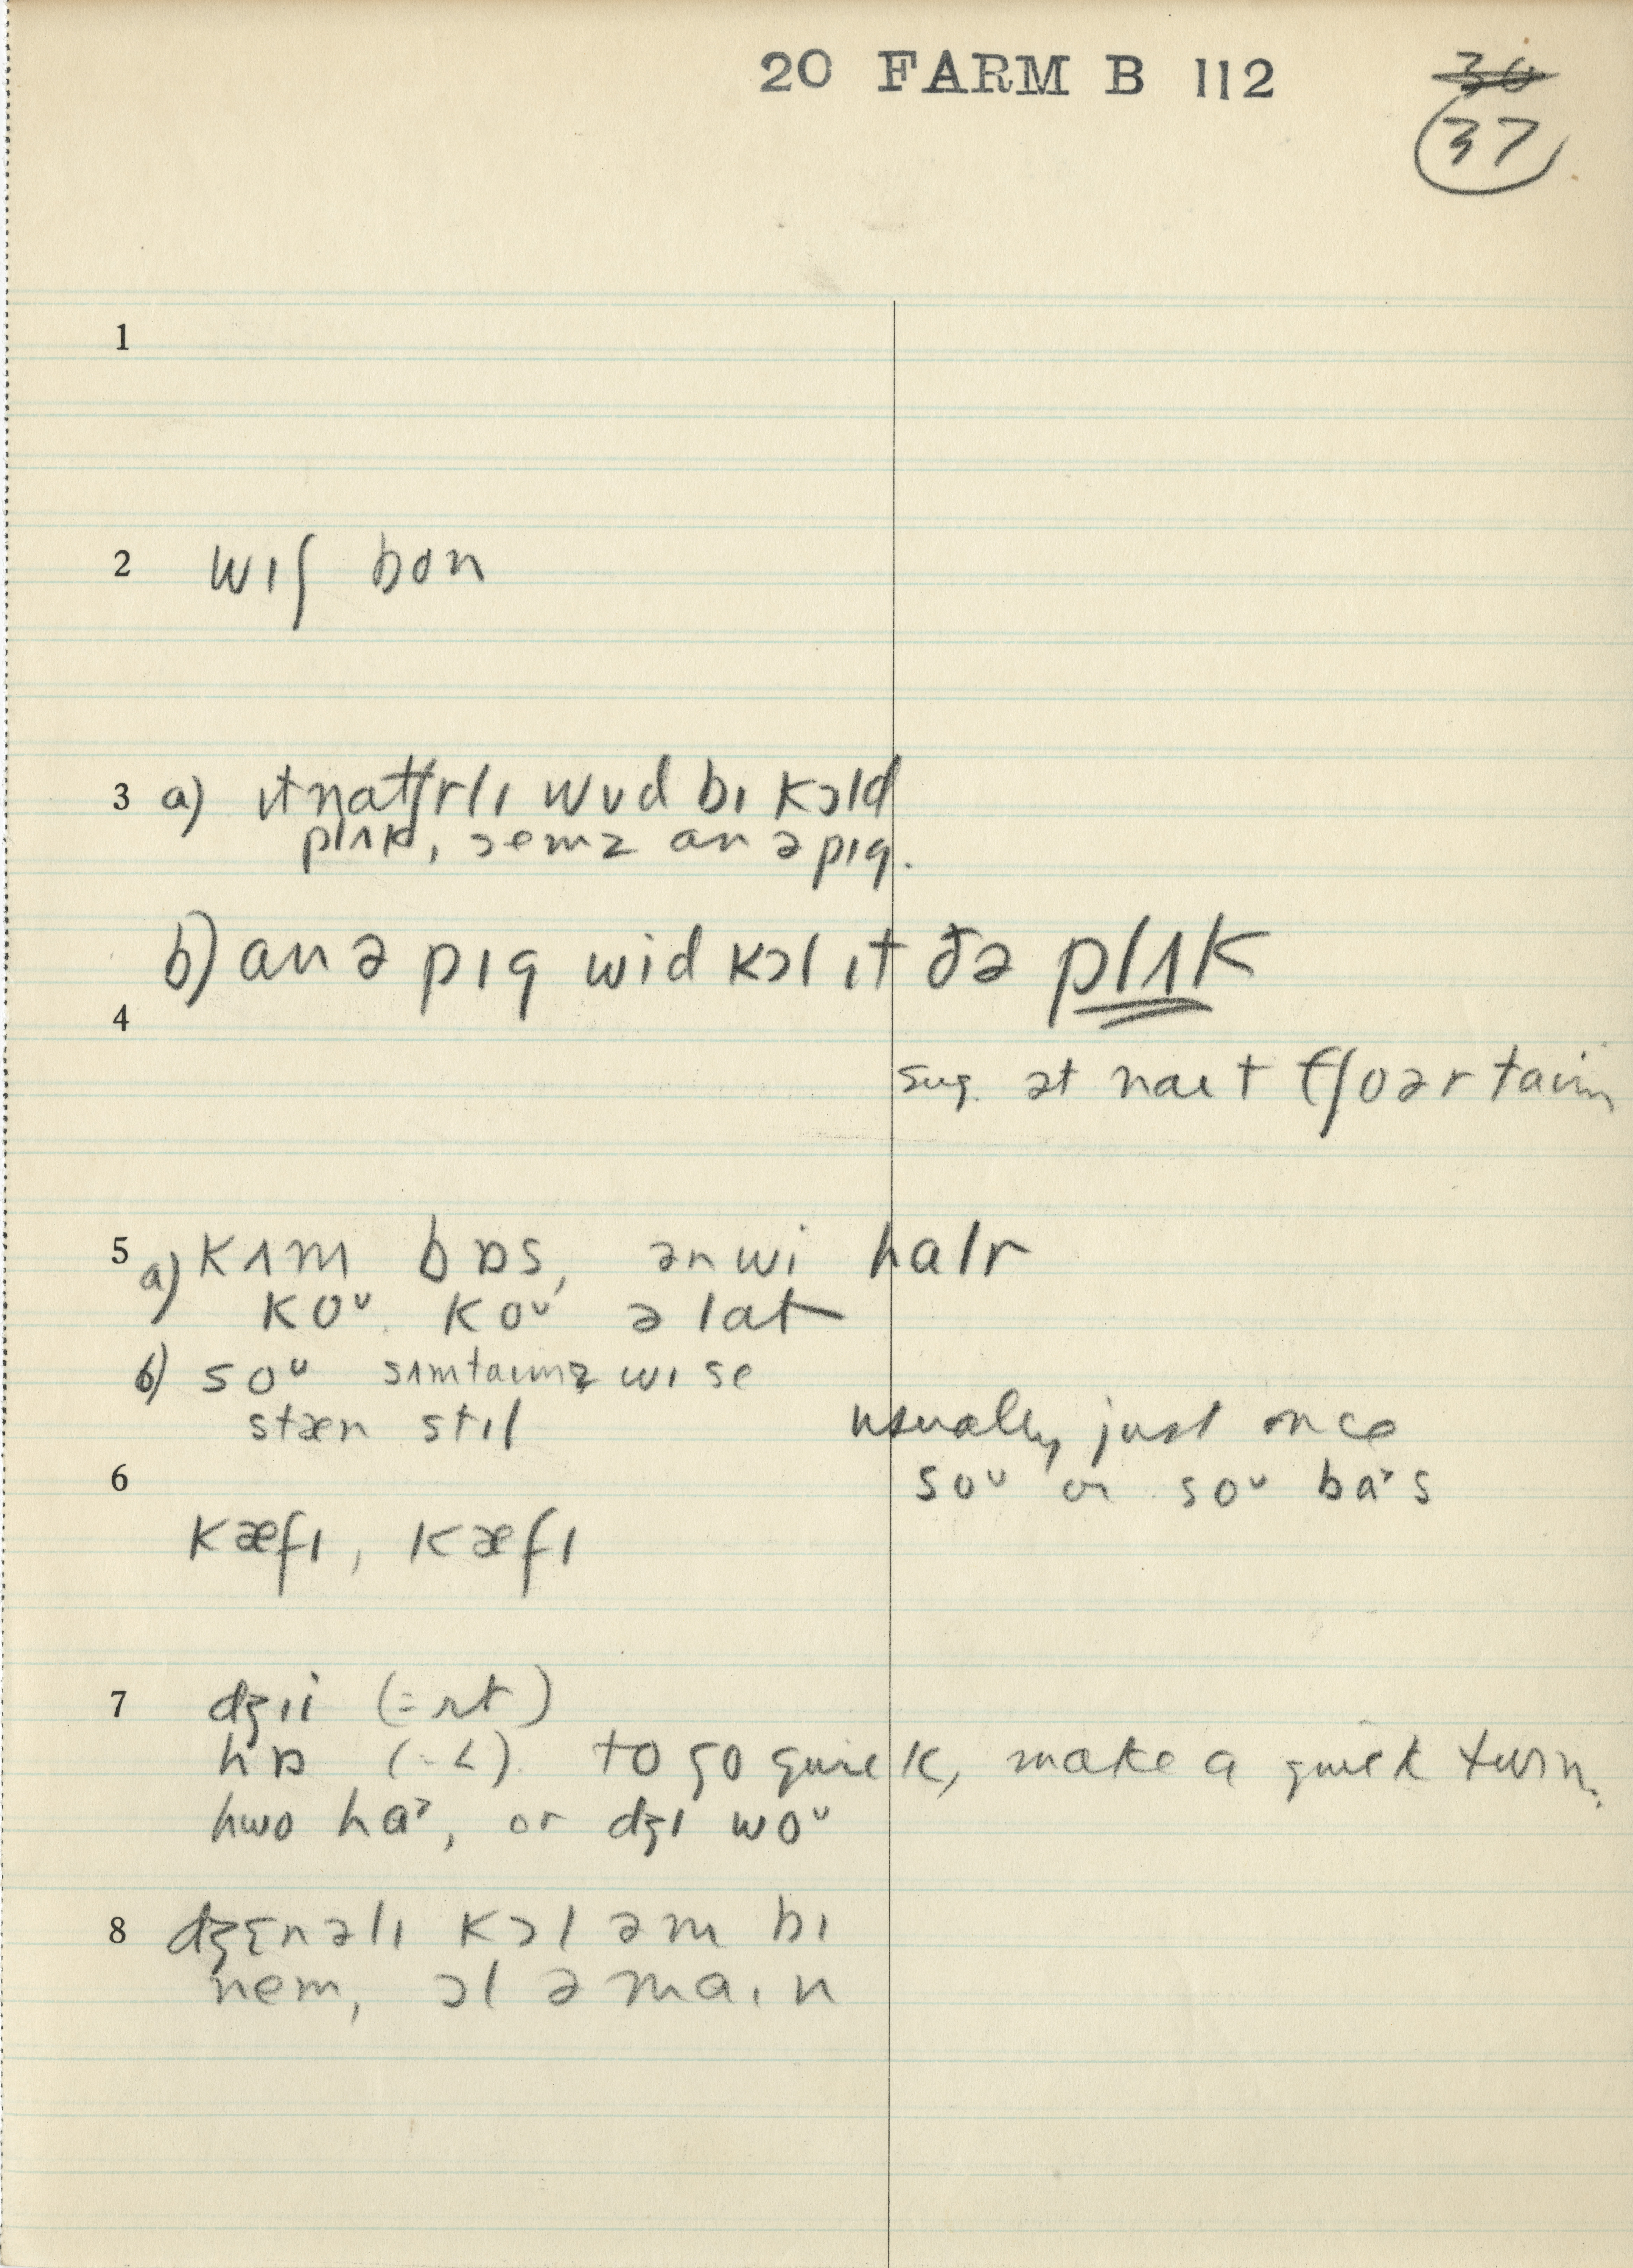 20 FARM B 112
36
37
1
2 wɪʃ bon
3 a) ɪtnatʃrlɪ wʊd bɪ kɔld
plʌk, semz an ə pɪg.
b) an ə pɪg wid kɔl ɪt ðə plʌk
4
sug. ət naɪt tʃoərtaɪm
5 a) kʌm bɒs, ən wi halr
koᵘ koᵘ ə lat
b) soᵘ sʌmtaɪmz wɪ se
stæn stɪl
usually just once
soᵘ or soᵘ ba˃s
6
kæfɪ, kæfɪ
7 dʒɪi (= rt)
hɒ (= L). to go quick, make a quick turn.
hwo ha˃, or dʒɪ woᵘ
8 dʒɛnəlɪ kɔl əm bɪ
nem, ɔl ə maɪn